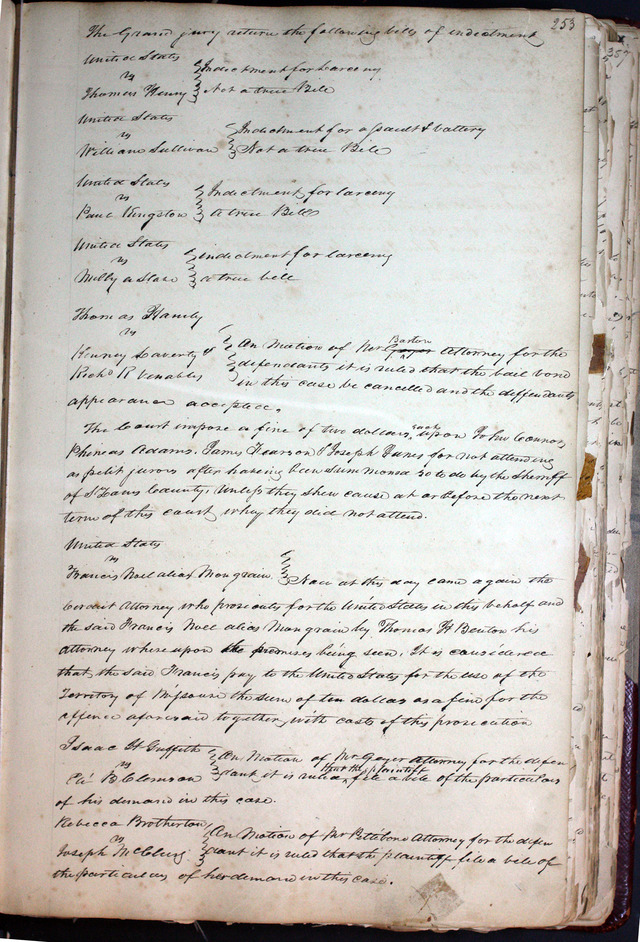 253
The Grand jury return the following bills of indictment
United States
vs
Indictment for larceny
Thomas Henry
Not a true Bill
United States
vs
Indictment for assault & battery
William Sullivan
Not a true Bill
United States
vs
Indictment for larceny
Paul Kingston
a true Bill
United States
vs
indictment for larceny
Milly a slave
a true bill
Thomas Handy
vs
Barton
On Motion of Mr Geyer Attorney for the
defendants it is ruled that the bail bond
Richd R Venables
in this case be cancelled and the deffendants
appearance accepted.
The Court impose a fine of two dollars each upon John Connor
Phineas Adams. James Pearson & Joseph for not attending
as petit jurors after haveing been summoned so to do by the Sherriff
of St Louis County, Unless they shew cause at or before the next
term of this court why they did not attend.
United States
vs
Francis Noel alias Mongrain
Now at this day came again the
Circuit Attorney who prosecutes for the United States in this behalf and
the said Francis Noel alias Mongrain by Thomas H Benton his
attorney where upon the premises being seen. It is considered
that the said Francis pay to the United States for the use of the
Territory of Missouri the sum of ten dollars as a fine for the
offence aforesaid together with costs of this prosecution
Isaac H Griffith
vs
On Motion of Mr Geyer Attorney for the defen
that the plaintiff
Eli B Clemson
dant it is ruled file a bill of the particulars
of his demand in this case.
Rebecca Brotherton
vs
On Motion of Mr Pettibone Attorney for the defen
Joseph McClurg
dant it is ruled that the plaintiff file a bill of
the particulars of her demand in this case.
357